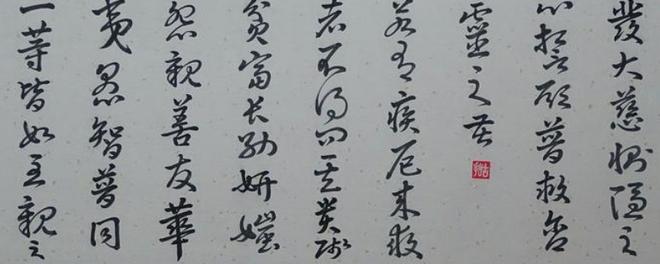 發大慈惻隱之
心誓願普救含
靈之苦
若有疾厄来救
者不得問其貴賤
貧富長幼妍媸
怨親善友華
夷愚智普同
一等皆如至親之